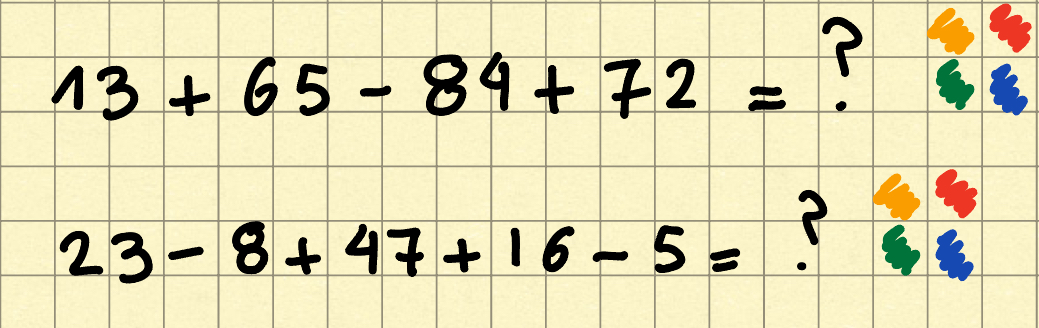 13 + 65 - 84 + 72 = ?
23 - 8 + 47 + 16 - 5 = ?